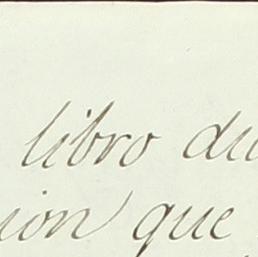 libro du
ion que